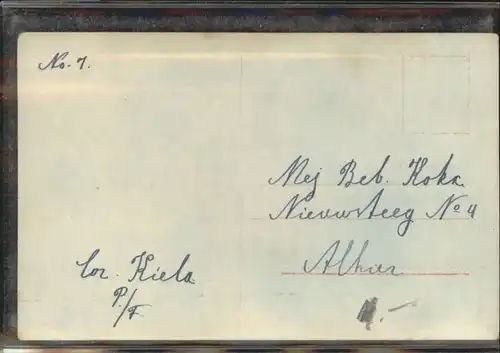 No. 7.
Mej Beb. Kokx.
Nieuwsteeg No 4
Alhier
Cor. Kiela
P/F.